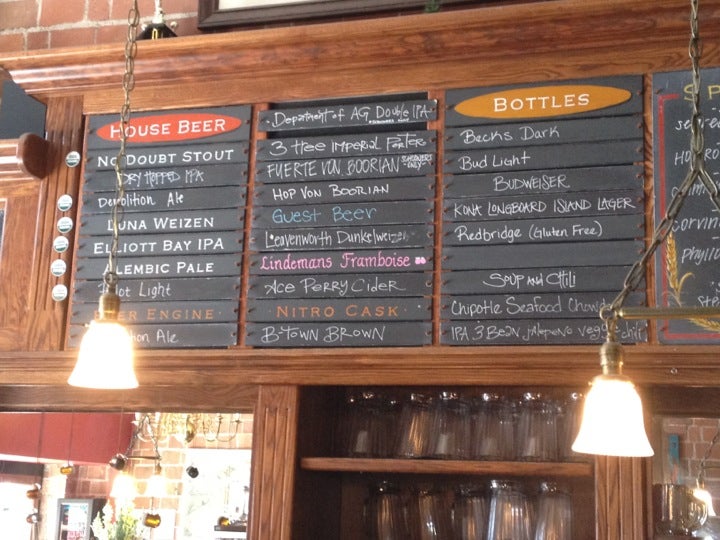 HOUSE BEER
NO DOUBT STOUT
DRY HOPPED IPA
Demolition Ale
LUNA WEIZEN
ELLIOTT BAY IPA
ALEMBIC PALE
Pilot Light
BEER ENGINE
Ale
Department of AG Double IPA
3 tree imperial Porter
FUERTE VON BOORIAN SCHOONERS ONLY
HOP VON BOORIAN
Guest Beer
Leavenworth Dunkelweizen
Lindemans Framboise
Ace Perry Cider
NITRO CASK
B-TOWN BROWN
BOTTLES
Becks Dark
Bud Light
BUDWEISER
KONA LONGBOARD ISLAND LAGER
Redbridge (Gluten Free)
SOUP AND Chili
Chipotle Seafood Chowder
IPA 3 Bean jalapeno veggie chili